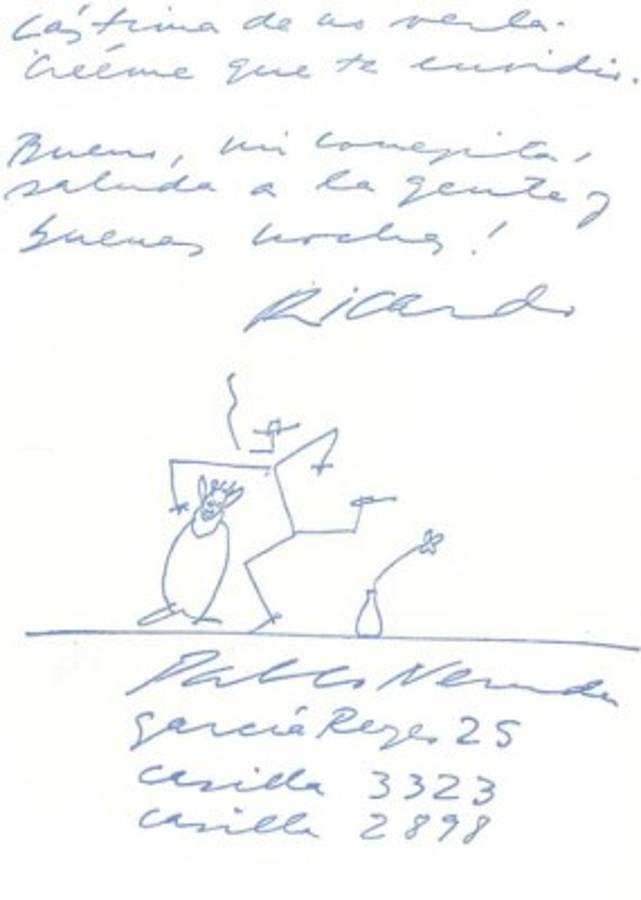 Lástima de no verla.
Créeme que te envidio.
Bueno, mi conejita,
saluda a la gente y
buenas noches!
Ricardo
Pablo Neruda
García Reyes 25
casilla 3323
casilla 2898